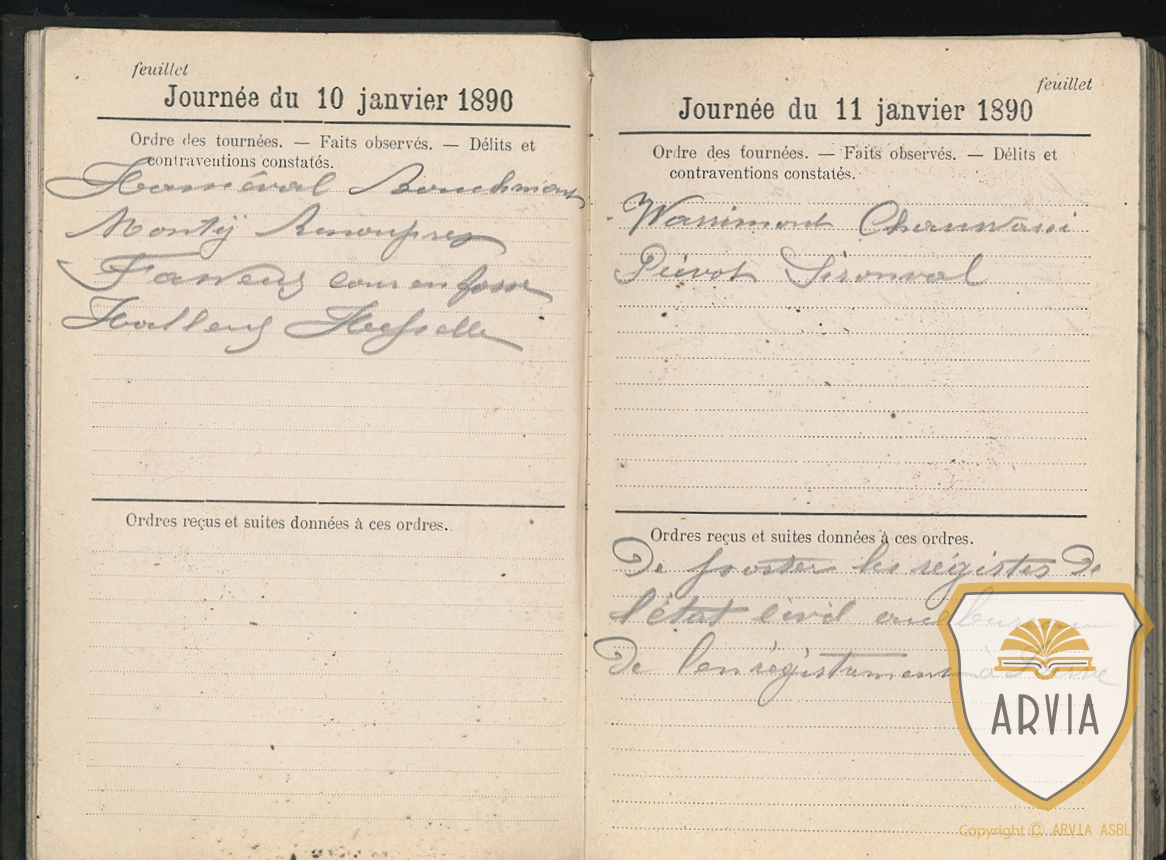 feuillet
Journée du 10 janvier 1890
Ordre des tournées. — Faits observés. — Délits et
contraventions constatés.
Hanséval Bouchmont
Montÿ Renouprez
Faweux cour en fosse
Halleux Hesselle
Ordres reçus et suites données à ces ordres.
feuillet
Journée du 11 janvier 1890
Ordre des tournées. — Faits observés. — Délits et
contraventions constatés.
Warrimont
Piévot Sironval
Ordres reçus et suites données à ces ordres.
De porter les régistes de
l'état civil au bureau
De l'enrégistument à
ARVIA
Copyright © ARVIA ASBL